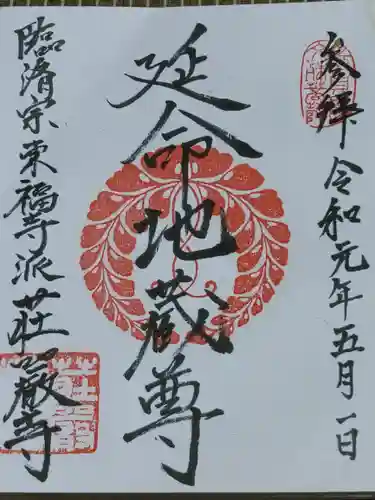 参拝 令和元年五月一日
延命地蔵尊
臨済宗東福寺派 荘嚴寺